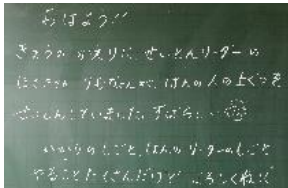 おはよう!!
きょうの かえりに せいとんリーダーの
さん さんが、はんの人の上ぐつを
せいとんしていました。すばらしい
かかりのしごと、はんのリーダーのしごと
やることたくさんだけど よろしくね!!